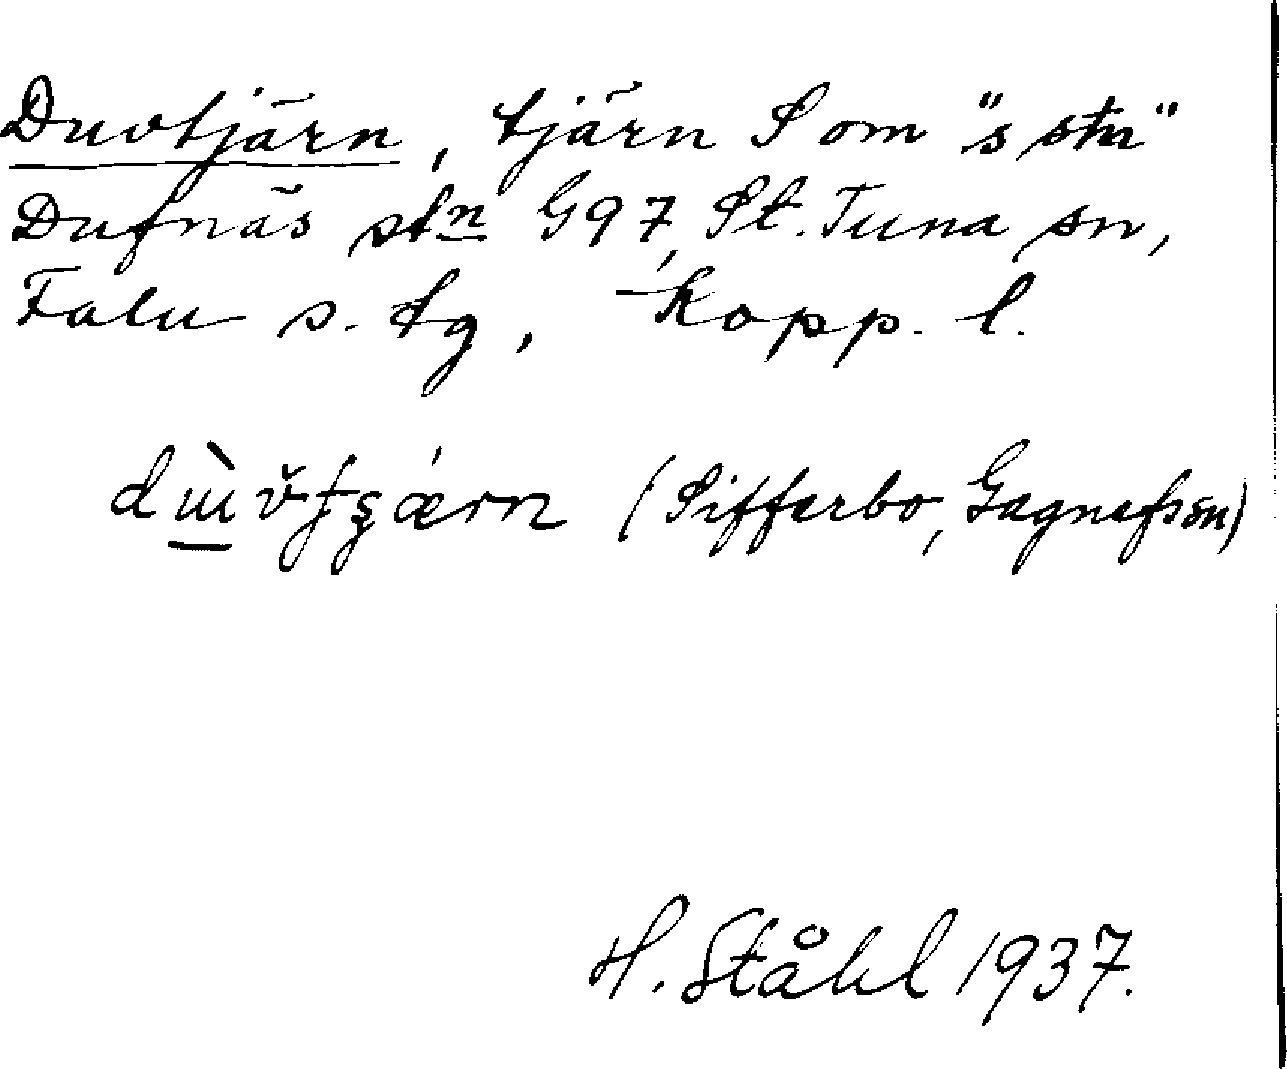 Duvtjärn, tjärn S om "s stn"
Dufnäs stn G97, St. Tuna sn,
Falu s. fg, Kopp. l.
(Sifferbo, Gagnefssn)
H. Ståhl 1937.